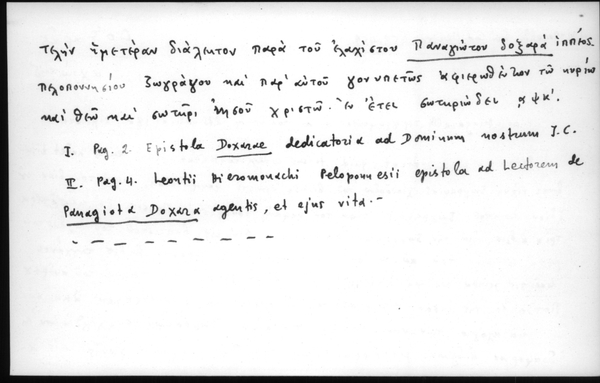 τελὴν ἡμετέραν διάλεκτον παρὰ τοῦ ἐλαχίστου Παναγιώτου δοξαρᾶ ἱππέος
πελοποννησίου ζωγράφου καὶ παρ' αὐτοῦ γονυπετῶς ἀφιερωθὲν τῶ κυρίω
καὶ θεῶ καὶ σωτῆρι Ἰησοῦ χριστῶ. Ἐν ἔτει σωτηριώδει ͵αψκ'.
I. Pag. 2. Epistola Doxarae dedicatoria ad Dominum nostrum J.C.
II. Pag. 4. Leontii Hieromonachi Peloponnesii epistola ad Lectorem de
Panagiota Doxara agentis, et ejus vita.-